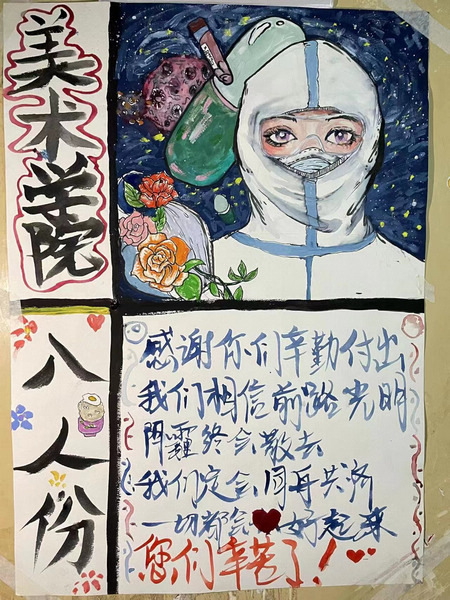 美术学院
八人份
感谢你们辛勤付出
我们相信前路光明
阴霾终会散去
我们定会同舟共济
一切都会好起来
您们辛苦了!